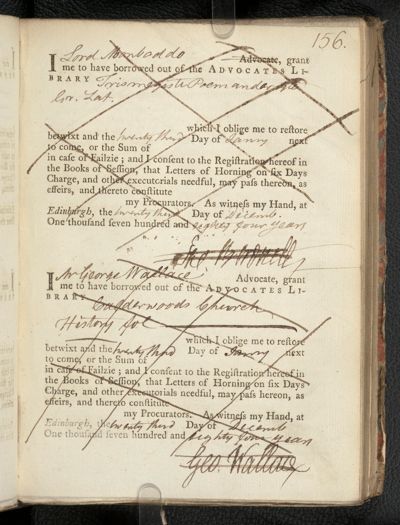 156.
I Lord Monboddo Advocate, grant
me to have borrowed out of the ADVOCATES LI-
BRARY Trismegisti Poemander
Gr. Lat.
which I oblige me to reſtore
betwixt and the twenty third Day of Janry next
to come, or the Sum of
in caſe of Failzie ; and I conſent to the Regiſtration hereof in
the Books of Seſſion, that Letters of Horning on ſix Days
Charge, and other executorials needful, may paſs thereon, as
effeirs, and thereto conſtitute
my Procurators. As witneſs my Hand, at
Edinburgh, the twenty third Day of Decemb.
One thouſand ſeven hundred and eighty four years
I Mr George Wallace Advocate, grant
me to have borrowed out of the ADVOCATES LI-
BRARY Calderwoods Church
History fol
which I oblige me to reſtore
betwixt and the twenty third Day of Janry next
to come, or the Sum of
in caſe of Failzie ; and I conſent to the Regiſtration hereof in
the Books of Seſſion, that Letters of Horning on ſix Days
Charge, and other executorials needful, may paſs hereon, as
effeirs, and thereto conſtitute
my Procurators. As witneſs my Hand, at
Edinburgh, the twenty third Day of Decemb
One thouſand ſeven hundred and eighty four years
Geo. Wallace